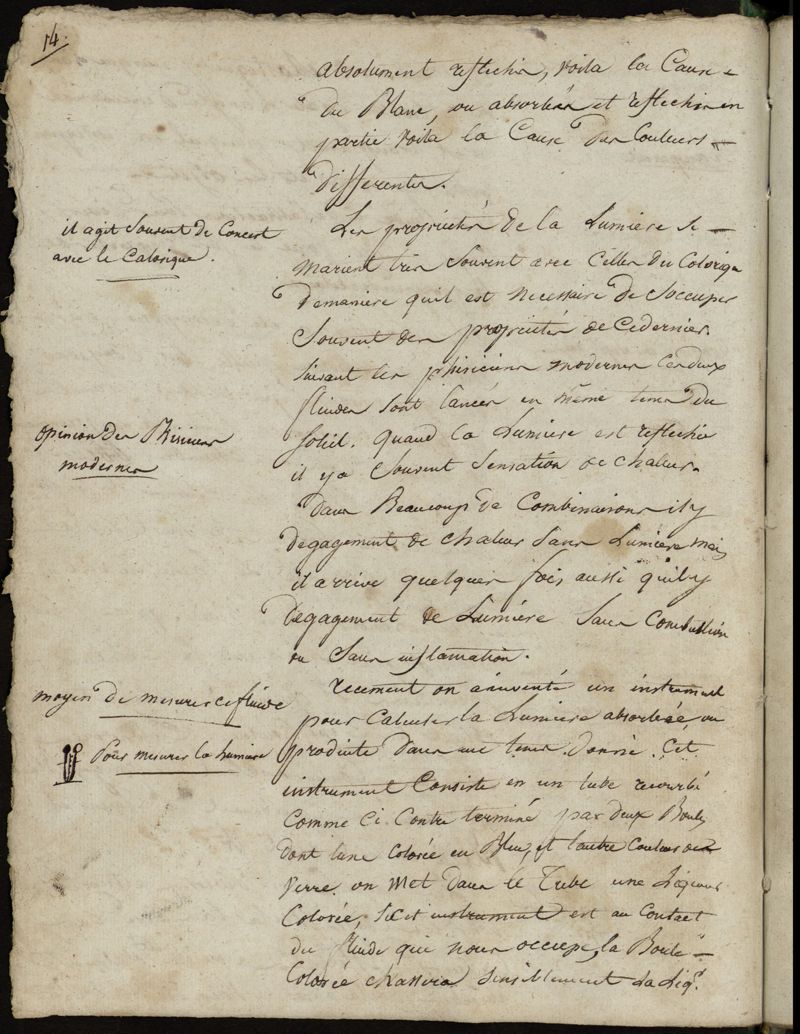 14.
absolument reflechis, voila la Cause
du Blanc, ou absorbés et reflechis en
partie voila la Cause des Couleurs
differentes.
il agit Souvent de Concert
avec le Calorique.
Les propriétés de la Lumiere se
marient tres Souvent avec Celles du Calorique
demaniere quil est necessaire de Soccuper
Souvent des propriétés de Cedernier.
Suivant les phisiciens modernes Cesdeux
fluides sont lancés en même tems du
opinion des Phisiciens
modernes
Soleil. quand la Lumiere est reflechie
il ya Souvent Sensation de chaleur.
dans Beaucoup de Combinaisons il y
degagement de chaleur Sans Lumiere mais
il arrive quelques fois aussi quil y
degagement de Lumiere Sans Combustion
ou Sans inflamation.
moyen de mesurer cefluide
recement on ainventé un instrument
pour Calculer la Lumiere absorbée ou
Pour mesurer la Lumiere
produite dans un tems donné. Cet
instrument Consiste en un tube recourbé
Comme Ci Contre terminé par deux Boules
dont lune Colorée en Bleu, et lautre Couleur de
Verre. on Met dans le Tube une Liqueur
Colorée, Si Cet instrument est au Contact
du fluide qui nous occupe, la Boule
Colorée chassera Sensiblement La Liq.